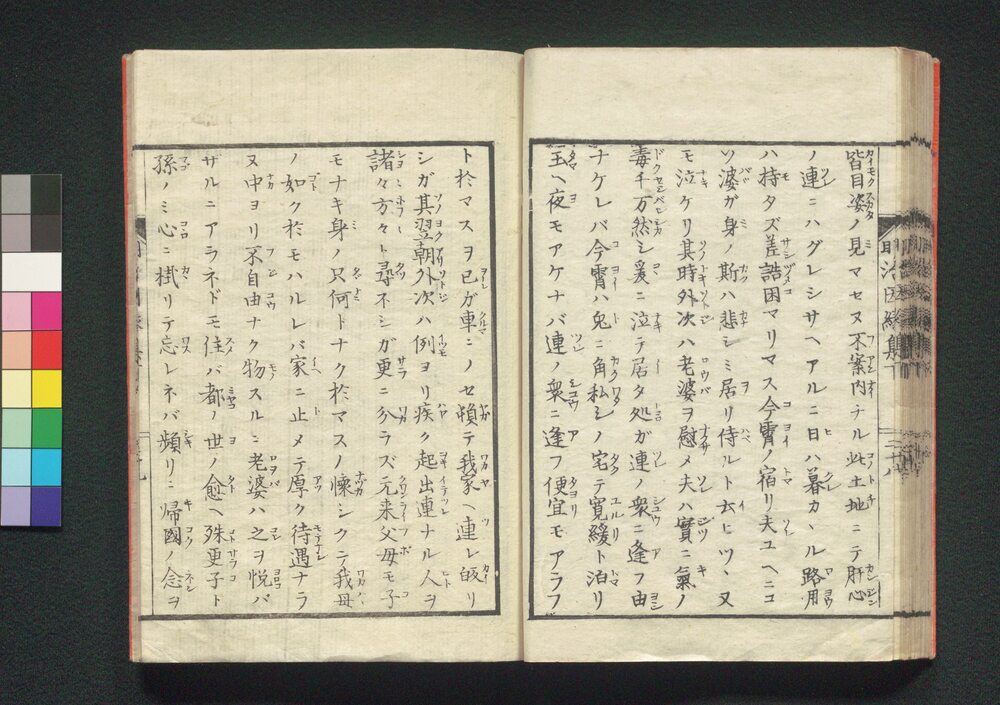 皆目姿ノ見マセヌ不案内ナル此土地ニテ肝心
ノ連ニハグレシサヘアルニ日ハ暮カヽル路用
ハ持タズ差詰困マリマス今霄ノ宿リ夫ユヘニコ
ソ婆ガ身ノ斯ハ悲シミ居リ侍ルト云ヒツヽ又
モ泣ケリ其時外次ハ老婆ヲ慰メ夫ハ實ニ氣ノ
毒千万然シ爰ニ泣テ居タ処ガ連ノ衆ニ逢フ由
ナケレバ今霄ハ兔ニ角私シノ宅テ寛緩ト泊リ
玉ヘ夜モアケナバ連ノ衆ニ逢フ便宜モアラフ
ト於マスヲ已ガ車ニノセ頓テ我家ヘ連レ皈リ
シガ其翌朝外次ハ例ヨリ疾ク起出連ナル人ヲ
諸々方々ト尋ネシガ更ニ分ラズ元来父母モ子
モナキ身只何トナク於マスノ懐シクテ我母
ノ如ク於モハルレバ家ニ止メテ厚ク待遇ナラ
又中ヨリ不自由ナク物スルニ老婆ハ之ヲ悦バ
ザルニアラネドモ住バ都ノ世ノ愈ヘ殊更子ト
孫ノミ心ニ掛リテ忘レネバ頻リニ帰國ノ念ヲ